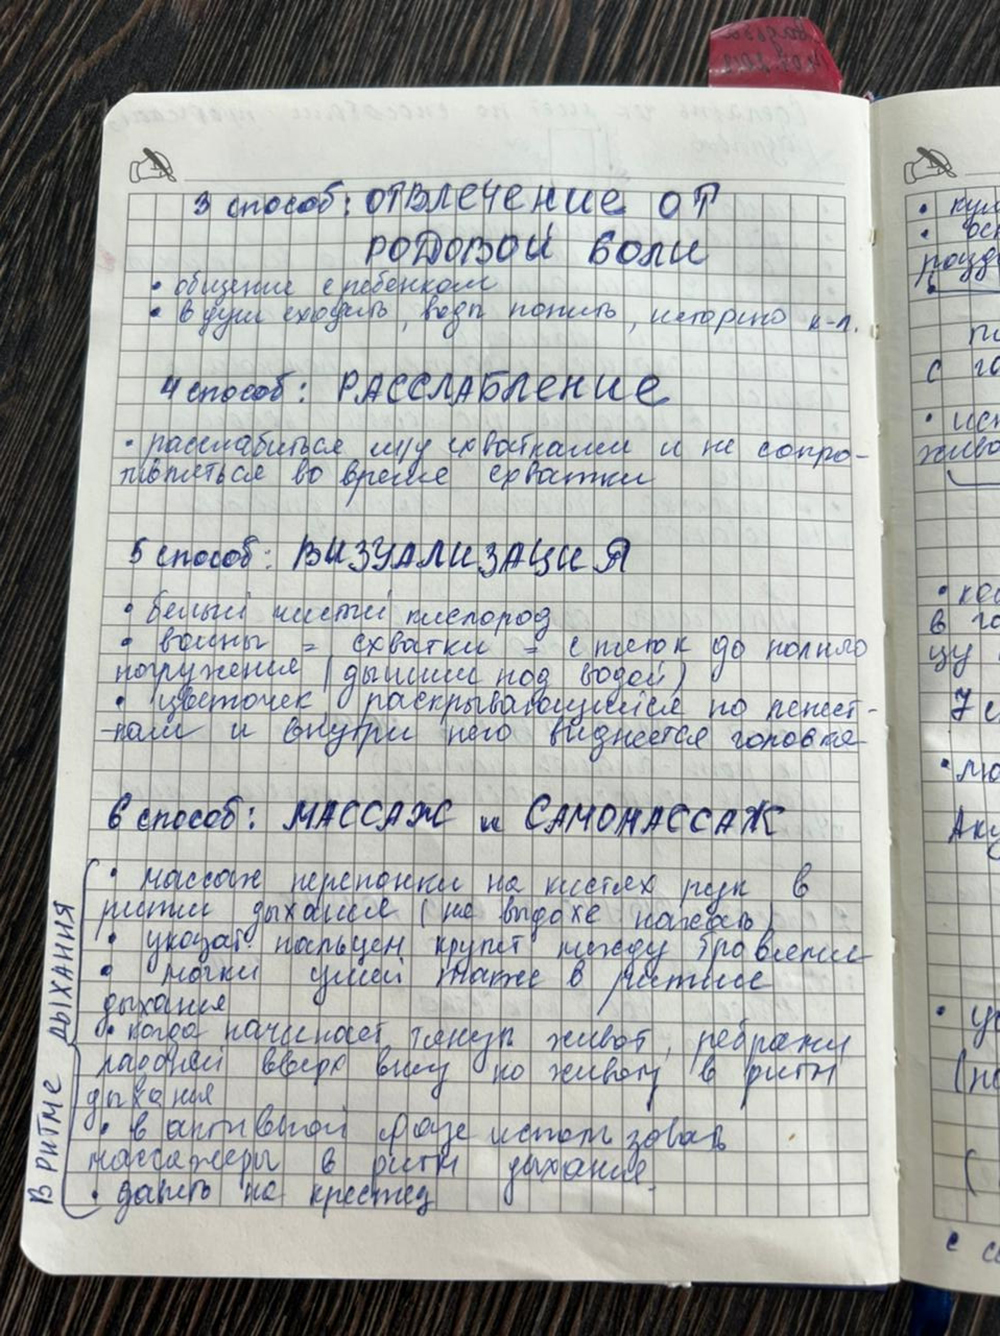 3 способ: ОТВЛЕЧЕНИЕ ОТ
РОДОВОЙ БОЛИ
• общение с ребенком
• в душ сходить, воды попить, историю к-л.
4 способ: РАССЛАБЛЕНИЕ
• расслабиться м/у схватками и не сопро-
тивляться во время схватки
5 способ: ВИЗУАЛИЗАЦИЯ
• белый чистый кислород
• волны = схватки = с пяток до полного
погружения (дышим под водой)
• цветочек раскрывающийся по лепест-
кам и внутри него виднеется головка
6 способ: МАССАЖ и САМОМАССАЖ
В РИТМЕ ДЫХАНИЯ
• массаж перепонки на кистях рук в
ритм дыхания (на выдохе нажать)
• указат. пальцем крутит между бровями
• мочки ушей также в ритме
дыхания
• когда начинает тянуть живот, ребрами
ладоней вверх вниз по животу в ритм
дыхания
• в активной фазе использовать
массажеры в ритм дыхания.
• давить на крестец
с
в
7
(
с